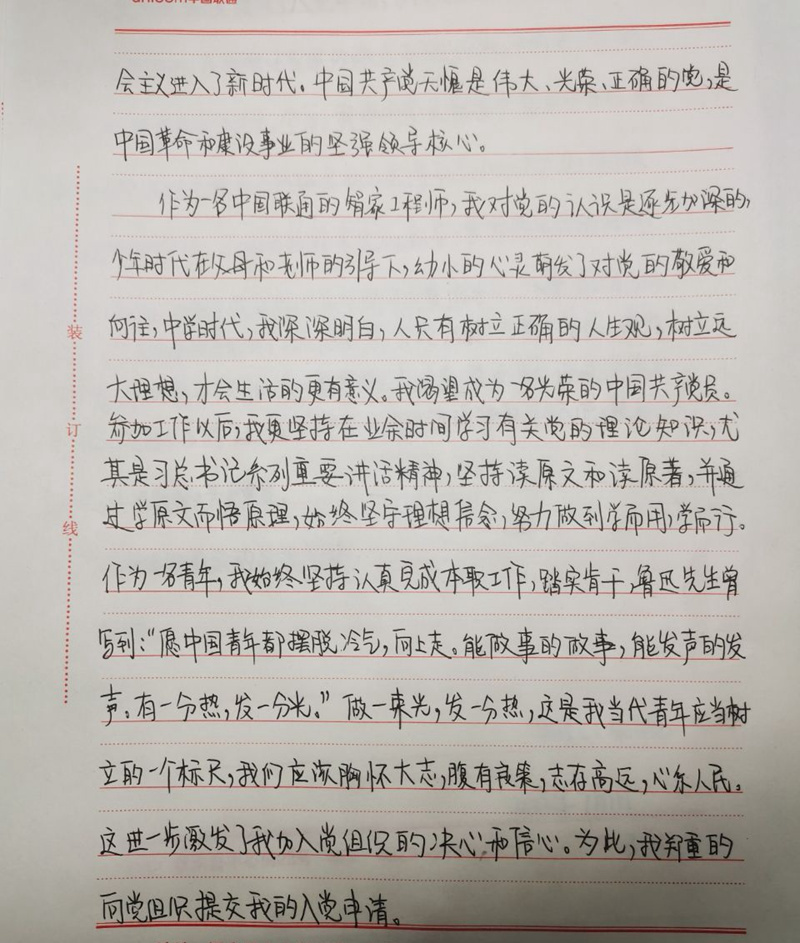 unicom中国联通
会主义进入了新时代。中国共产党无愧是伟大、光荣、正确的党,是
中国革命和建设事业的坚强领导核心。
作为一名中国联通的智家工程师,我对党的认识是逐步加深的,
少年时代在父母和老师的引导下,幼小的心灵萌发了对党的敬爱和
向往,中学时代,我深深明白,人只有树立正确的人生观,树立远
大理想,才会生活的更有意义。我渴望成为一名光荣的中国共产党员。
参加工作以后,我更坚持在业余时间学习有关党的理论知识,尤
其是习总书记系列重要讲话精神,坚持读原文和读原著,并通
过学原文而悟原理,始终坚守理想信念,努力做到学而用,学而行。
作为一名青年,我始终坚持认真完成本职工作,踏实肯干,鲁迅先生曾
写到:“愿中国青年都摆脱冷气,向上走。能做事的做事,能发声的发
声。有一分热,发一分光。”做一束光,发一分热,这是我当代青年应当树
立的一个标尺,我们应该胸怀大志,腹有良策,志存高远,心系人民。
这进一步激发了我加入党组织的决心和信心。为此,我郑重的
向党组织提交我的入党申请。
装
订
线